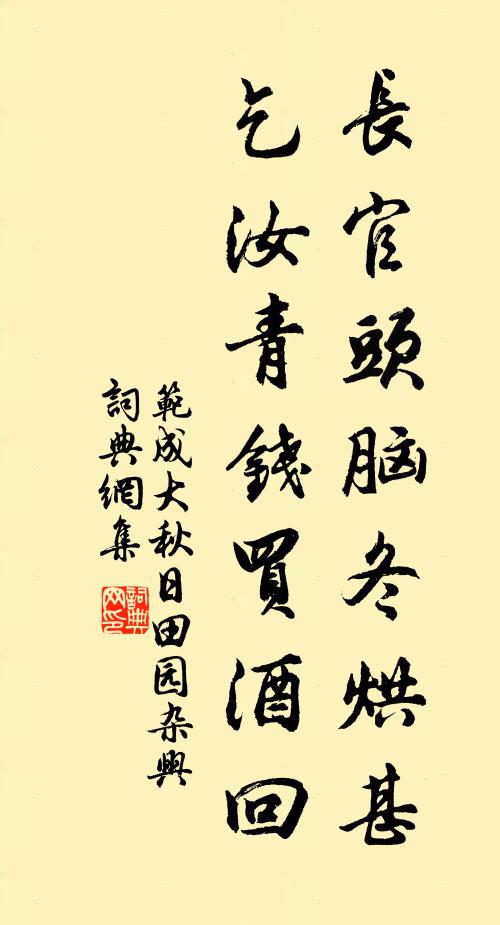 長官頭脑冬烘甚
乞汝青錢買酒回
範成大秋日田园杂興
詞典網集
詞典网印